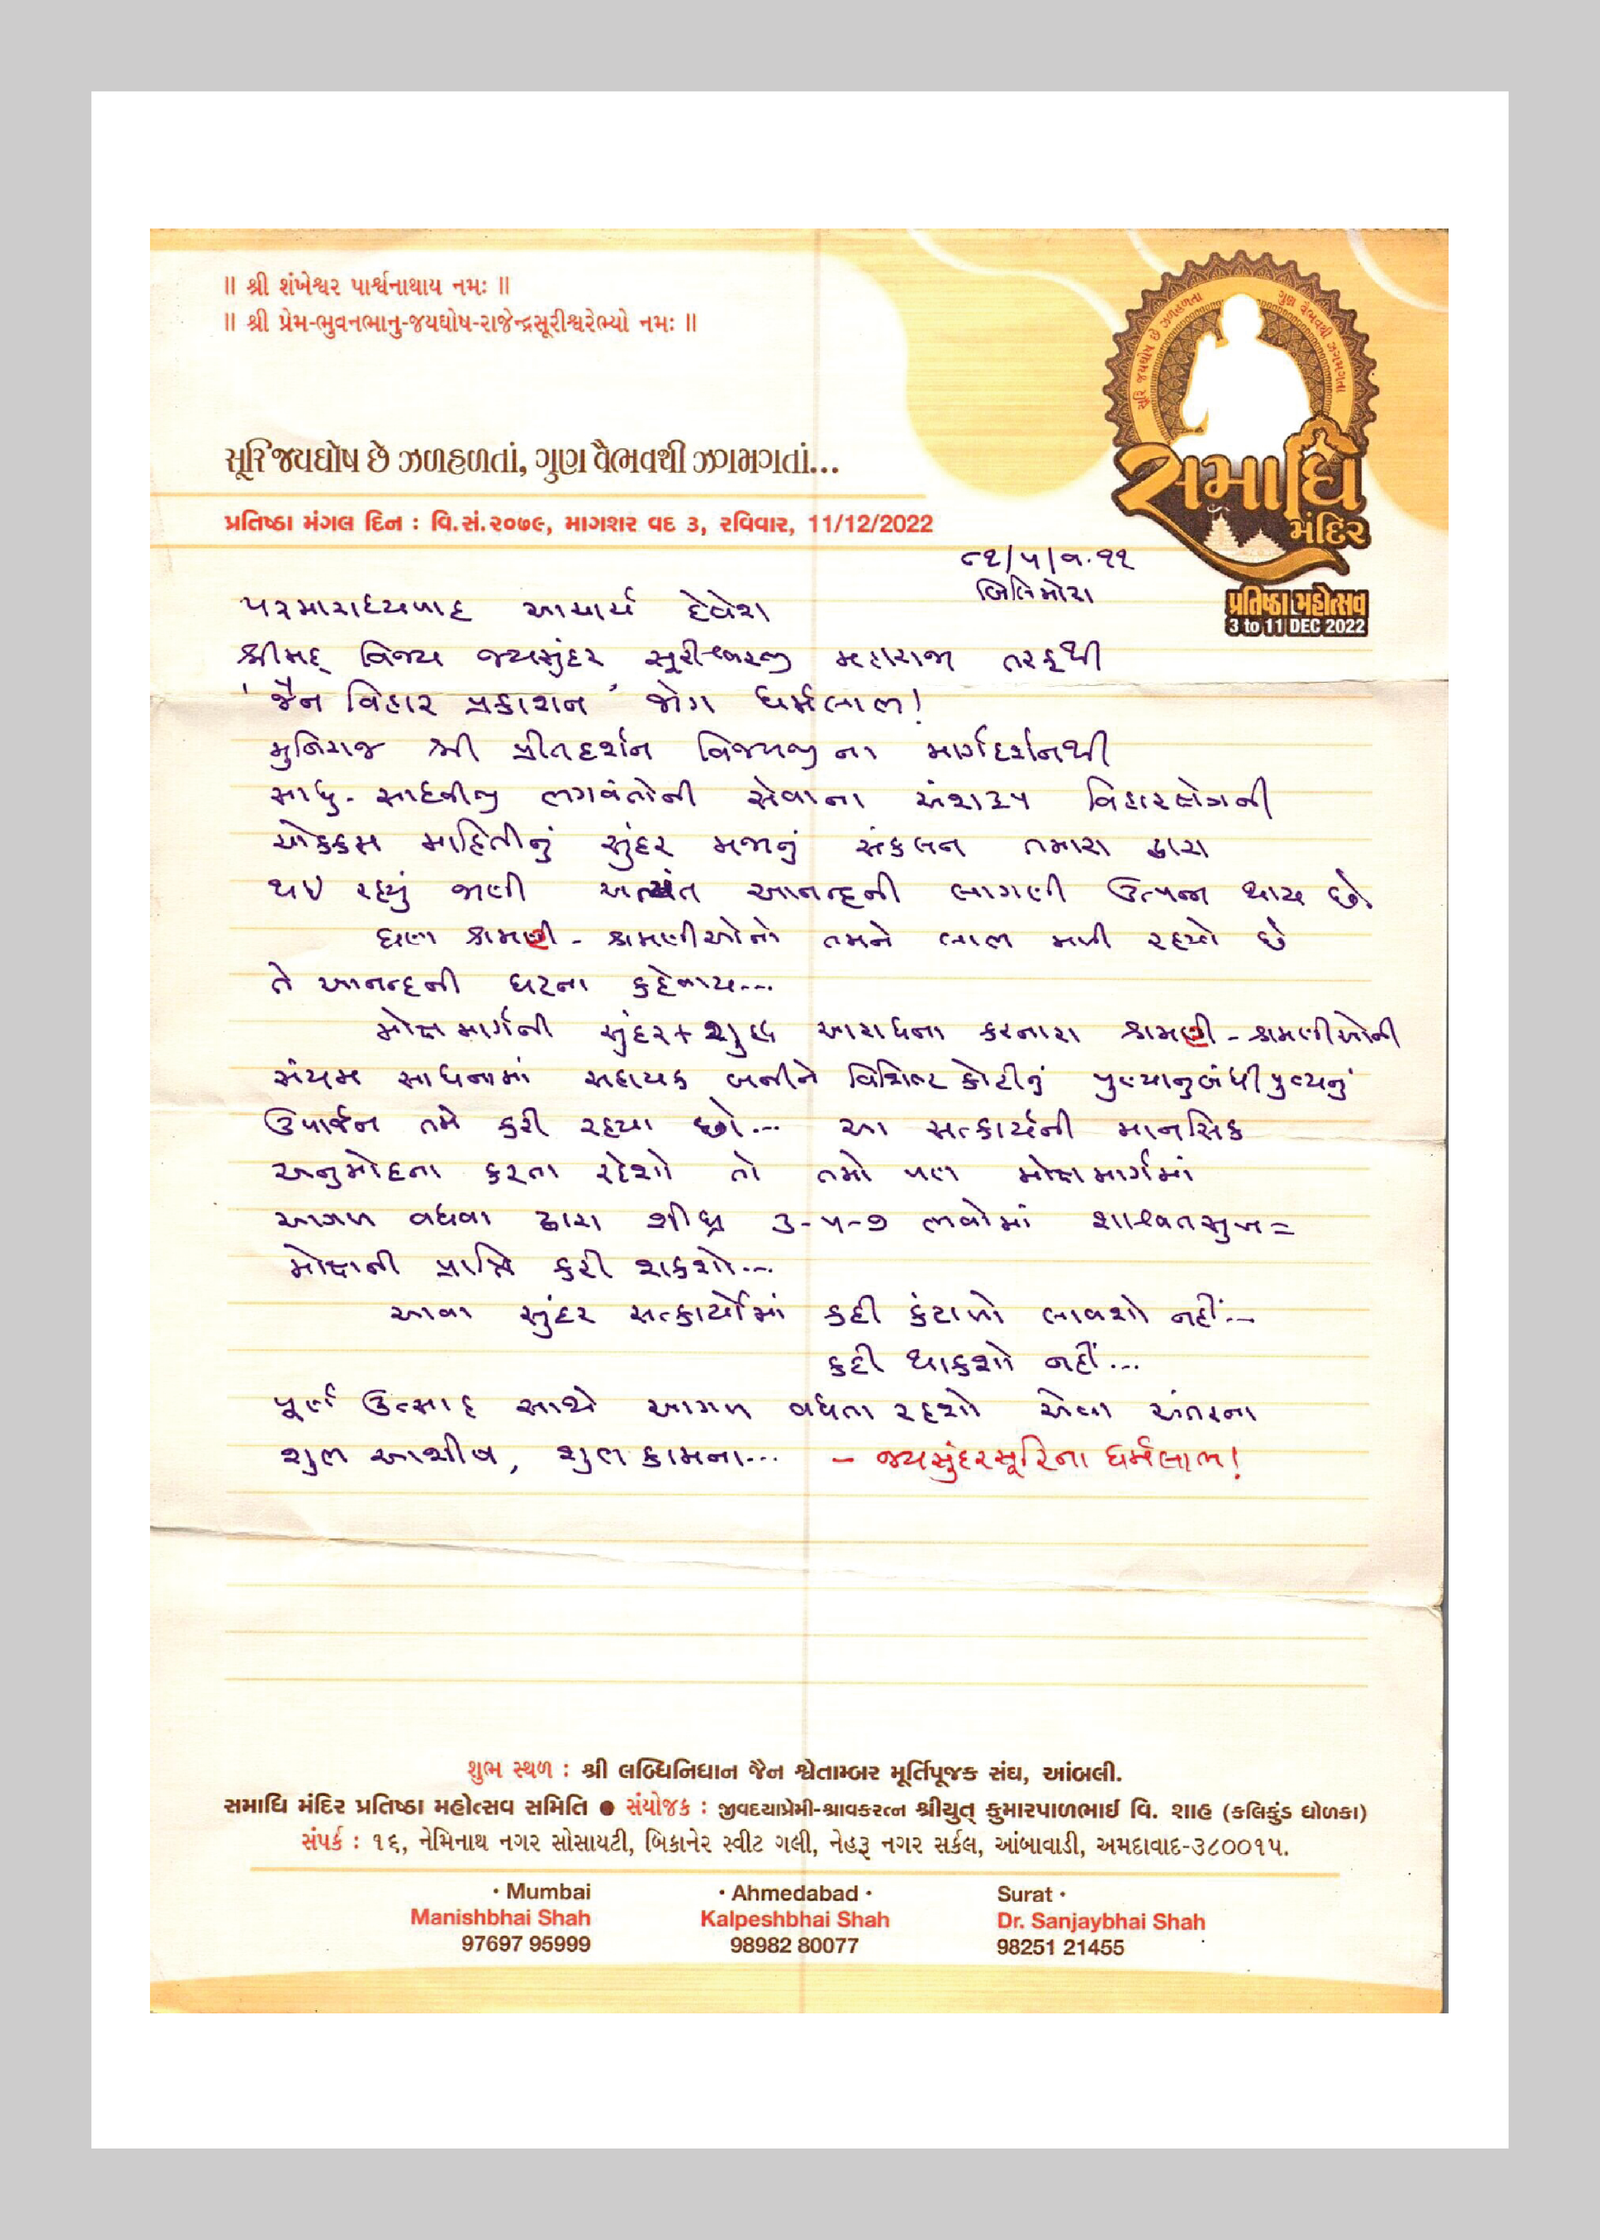 ॥ શ્રી શંખેશ્વર પાર્શ્વનાથાય નમઃ ॥
॥ શ્રી પ્રેમ-ભુવનભાનુ-જયઘોષ-રાજેન્દ્રસૂરીશ્વરેભ્યો નમઃ ॥
સૂરિ જયઘોષ છે ઝળહળતા
ગુણ વૈભવથી ઝગમગતા
સૂરિ જયઘોષ છે ઝળહળતાં, ગુણ વૈભવથી ઝગમગતાં...
સમાધિ
મંદિર
પ્રતિષ્ઠા મહોત્સવ
3 to 11 DEC 2022
પ્રતિષ્ઠા મંગલ દિન : વિ.સં.૨૦૭૯, માગશર વદ ૩, રવિવાર, 11/12/2022
૮૧/૫/વ.૧૧
બિલિમોરા
પરમારાધ્યપાદ આચાર્ય દેવેશ
શ્રીમદ્ વિજય જયસુંદર સૂરીશ્વરજી મહારાજા તરફથી
'જૈન વિહાર પ્રકાશન' જોગ ધર્મલાભ!
મુનિરાજ શ્રી પ્રીતદર્શન વિજયજી ના માર્ગદર્શનથી
સાધુ-સાધ્વીજી ભગવંતોની સેવાના અંશરૂપ વિહારક્ષેત્રની
ચોક્કસ માહિતીનું સુંદર મજાનું સંકલન તમારા દ્વારા
થઇ રહ્યું જાણી અત્યંત આનન્દની લાગણી ઉત્પન્ન થાય છે.
ઘણા શ્રામણી - શ્રામણીઓનો તમને લાભ મળી રહ્યો છે
તે આનન્દની ઘટના કહેવાય...
મોક્ષ માર્ગની સુંદર + શુદ્ધ આરાધના કરનારા શ્રામણી - શ્રામણીઓની
સંયમ સાધનામાં સહાયક બનીને વિશિષ્ટ કોટીનું પુણ્યાનુબંધીપુણ્યનું
ઉપાર્જન તમે કરી રહ્યા છો... આ સત્કાર્યની માનસિક
અનુમોદના કરતા રહેશો તો તમો પણ મોક્ષ માર્ગમાં
આગળ વધવા દ્વારા શીઘ્ર ૩-૫-૭ ભવોમાં શાશ્વતસુખ =
મોક્ષની પ્રાપ્તિ કરી શકશો...
આવા સુંદર સત્કાર્યોમાં કદી કંટાળો લાવશો નહીં...
કદી થાકશો નહીં...
પૂર્ણ ઉત્સાહ સાથે આગળ વધતા રહશો એવા અંતરના
શુભ આશીષ, શુભ કામના... - જયસુંદરસૂરિના ધર્મલાભ!
શુભ સ્થળ : શ્રી લબ્ધિનિધાન જૈન શ્વેતામ્બર મૂર્તિપૂજક સંઘ, આંબલી.
સમાધિ મંદિર પ્રતિષ્ઠા મહોત્સવ સમિતિ ● સંયોજક : જીવદયાપ્રેમી-શ્રાવકરત્ન શ્રીયુત્ કુમારપાળભાઈ વિ. શાહ (કલિકુંડ ધોળકા)
સંપર્ક : ૧૬, નેમિનાથ નગર સોસાયટી, બિકાનેર સ્વીટ ગલી, નેહરૂ નગર સર્કલ, આંબાવાડી, અમદાવાદ-૩૮૦૦૧૫.
• Mumbai • Ahmedabad • Surat •
Manishbhai Shah Kalpeshbhai Shah Dr. Sanjaybhai Shah
97697 95999 98982 80077 98251 21455